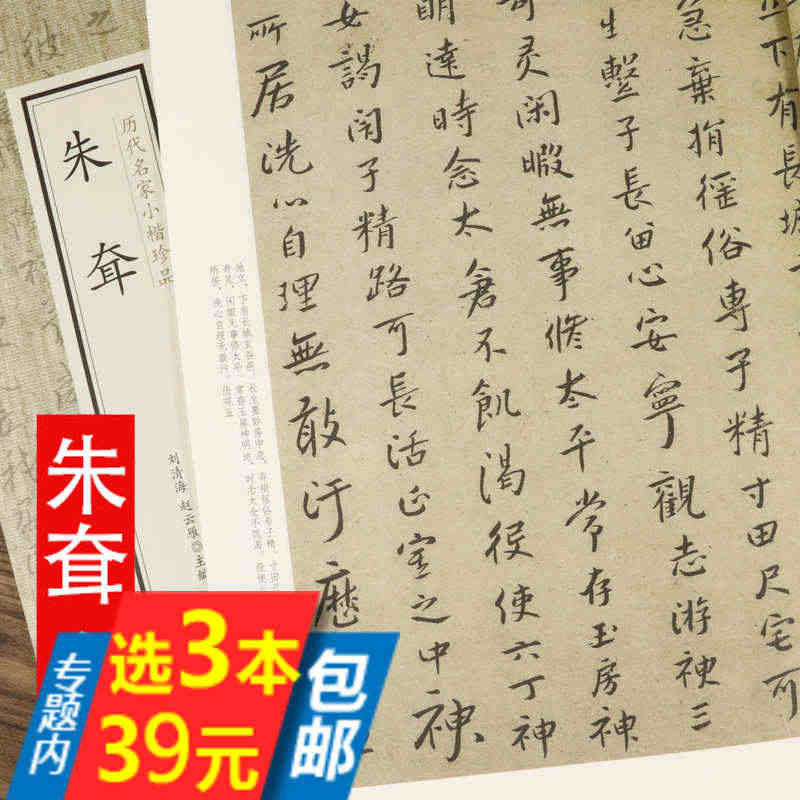 下有長城
急棄捐徭俗專子精寸田尺宅可
生繫子長留心安寧觀志游神三
灵閑暇無事脩太平常存玉房神
明達時念太倉不飢渴役使六丁神
女謁閉子精路可長活正室之中神
所居洗心自理無敢汙歷
历代名家小楷珍品
朱耷
刘清海 赵云雁 主编
朱耷
专题内
选3本
39元
包邮